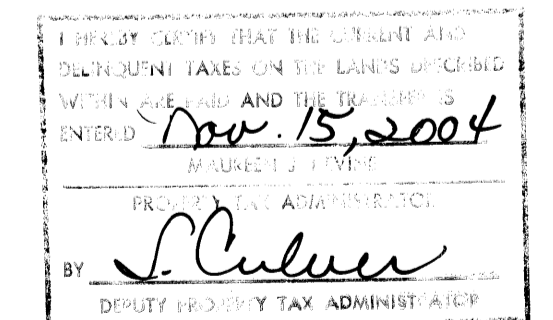 I HEREBY CERTIFY THAT THE CURRENT AND
DELINQUENT TAXES ON THE LANDS DESCRIBED
WITHIN ARE PAID AND THE TRANSFER IS
ENTERED Nov. 15, 2004
MAUREEN J. DEVINE
PROPERTY TAX ADMINISTRATOR
BY S. Culver
DEPUTY PROPERTY TAX ADMINISTRATOR